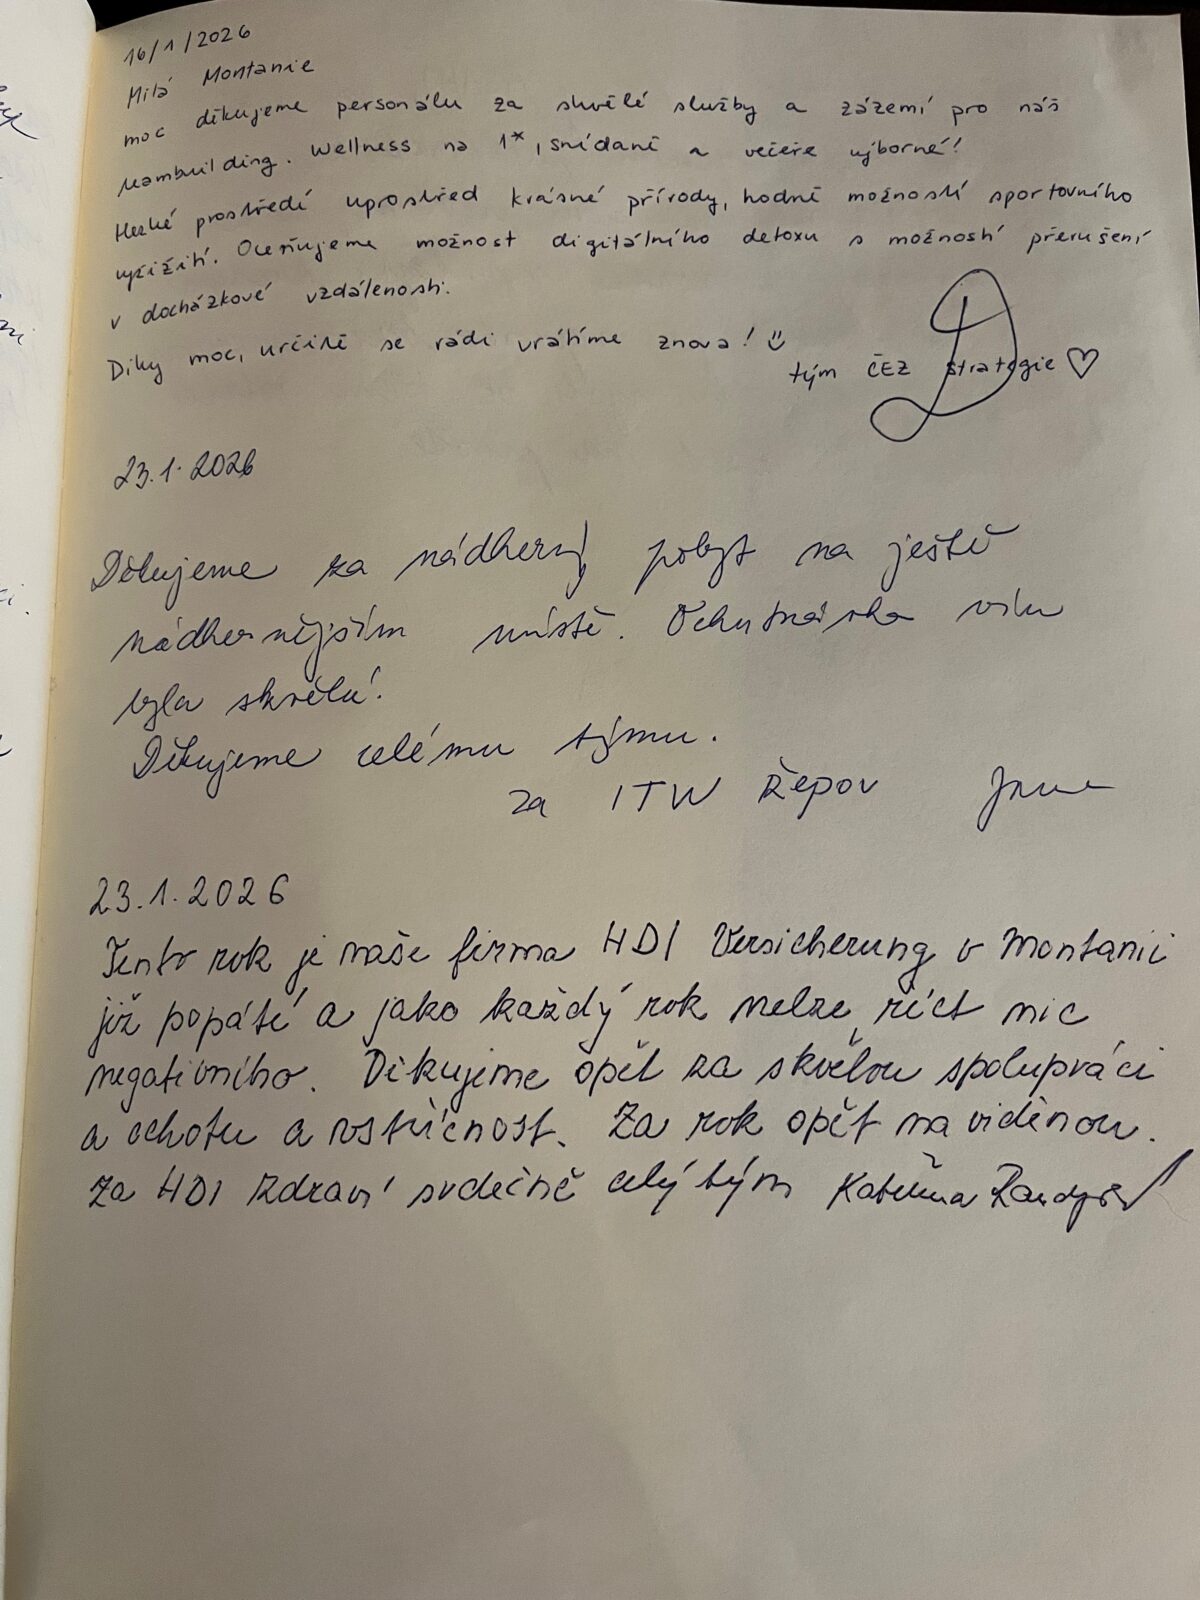 16/1/2026
Milá Montanie
moc děkujeme personálu za skvělé služby a zázemí pro náš
teambuilding. Wellness na 1*, snídaně a večeře výborné!
Hezké prostředí uprostřed krásné přírody, hodně možností sportovního
vyžití. Oceňujeme možnost digitálního detoxu s možností přerušení
v docházkové vzdálenosti.
Díky moc, určitě se rádi vrátíme znova!
tým ČEZ strategie ♡
23.1.2026
Děkujeme za nádherný pobyt na ještě
nádhernějším místě. Ochutnávka vín
byla skvělá!
Děkujeme celému týmu.
za ITW Řepov
23.1.2026
Tento rok je naše firma HDI Versicherung v Montanii
již popáté a jako každý rok nelze říct nic
negativního. Děkujeme opět za skvělou spolupráci
a ochotu a vstřícnost. Za rok opět na viděnou.
Za HDI zdraví srdečně celý tým Kateřina